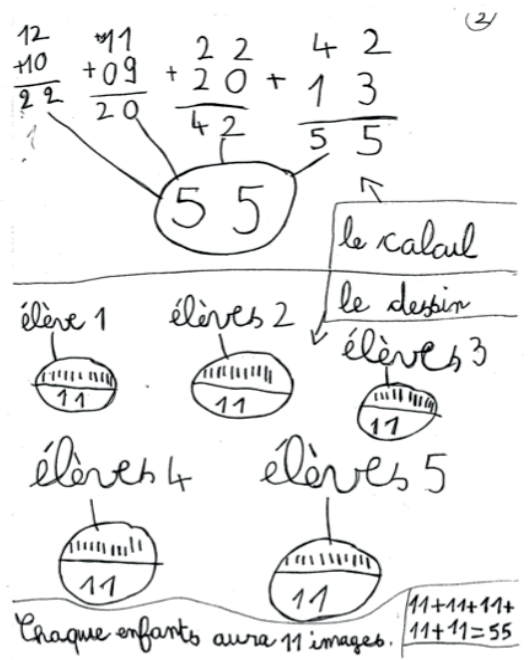 2
12 11 2 2 4 2
+10 +09 + 2 0 + 1 3
22 20 42 5 5
5 5
le calcul
le dessin
élève 1 élèves 2
élèves 3
11 11 11
élèves 4 élèves 5
11 11
Chaque enfants aura 11 images.
11+11+11+
11+11=55